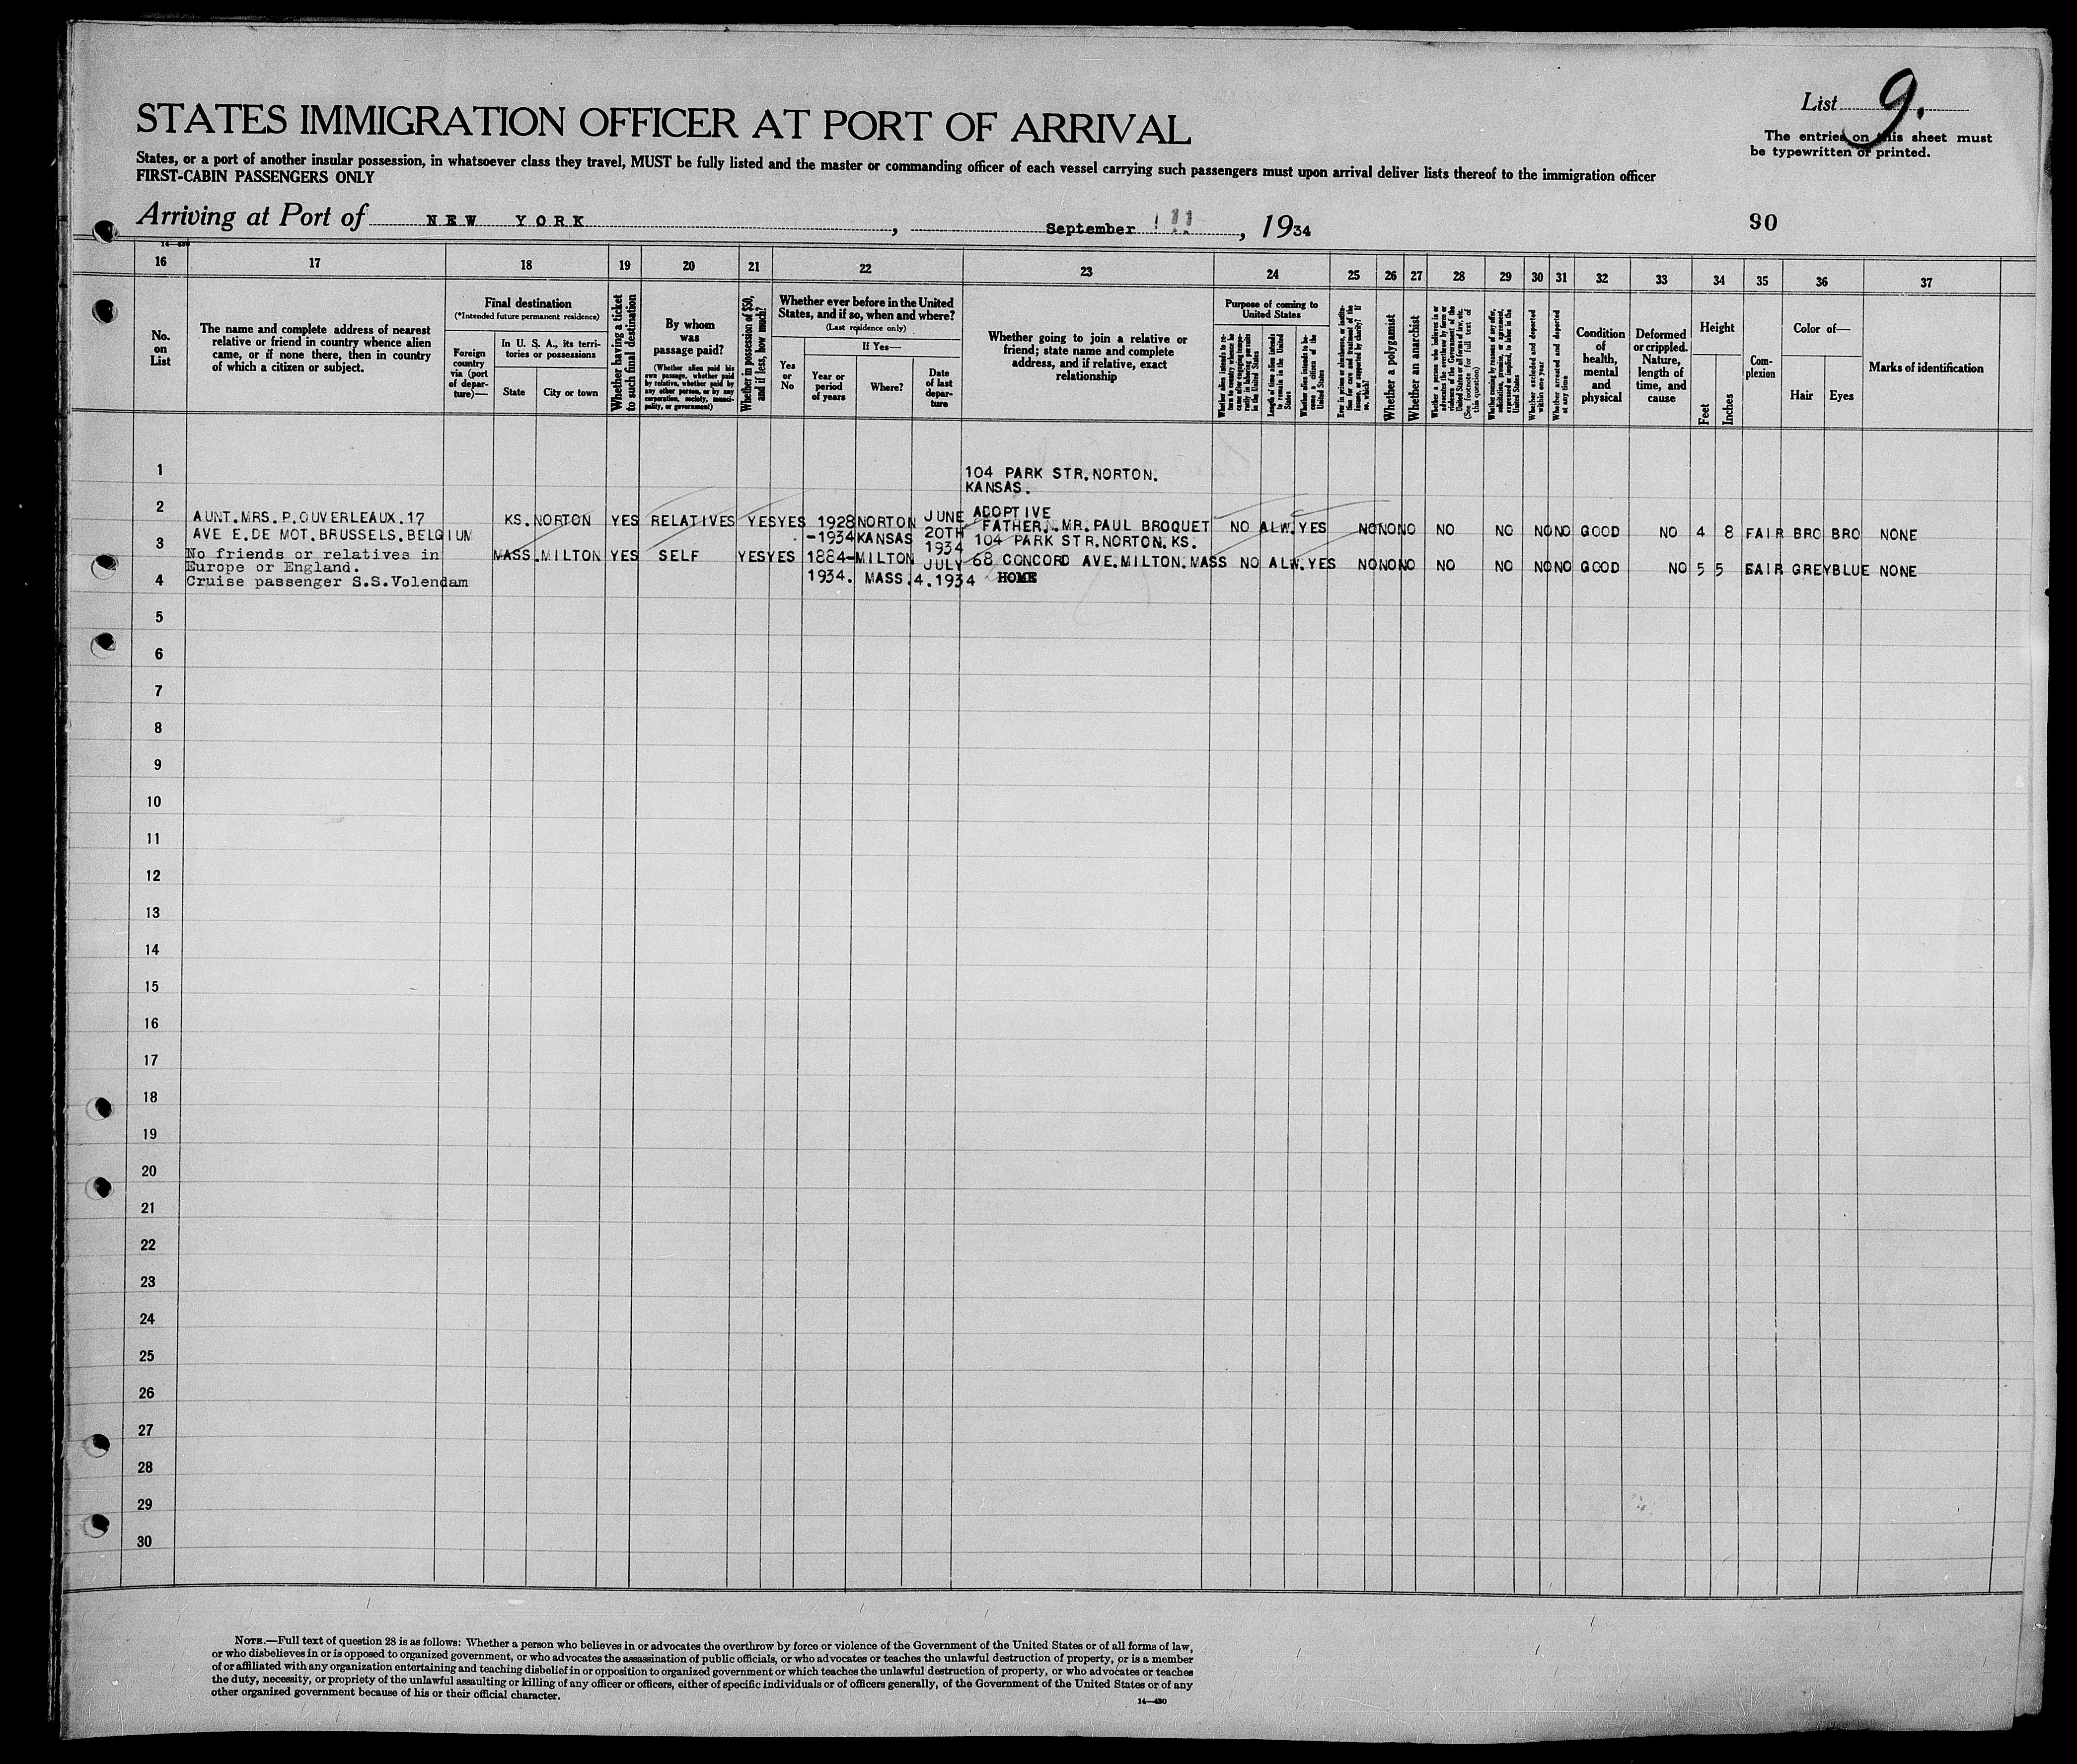 List 9.
The entries on this sheet must
be typewritten or printed.
STATES IMMIGRATION OFFICER AT PORT OF ARRIVAL
States, or a port of another insular possession, in whatsoever class they travel, MUST be fully listed and the master or commanding officer of each vessel carrying such passengers must upon arrival deliver lists thereof to the immigration officer
FIRST-CABIN PASSENGERS ONLY
Arriving at Port of NEW YORK, September 11, 1934
90
16 17 18 19 20 21 22 23 24 25 26 27 28 29 30 31 32 33 34 35 36 37
No. on List
The name and complete address of nearest
relative or friend in country whence alien
came, or if none there, then in country
of which a citizen or subject.
Final destination
(*Intended future permanent residence)
Foreign country via (port of departure)—
In U. S. A., its territories or possessions
State
City or town
Whether having a ticket to such final destination
By whom was passage paid?
(Whether alien paid his own passage, whether paid by relative, whether paid by any other person, or by any corporation, society, municipality, or government)
Whether in possession of $50, and if less, how much?
Whether ever before in the United States, and if so, when and where?
(Last residence only)
Yes or No
If Yes—
Year or period of years
Where?
Date of last departure
Whether going to join a relative or
friend; state name and complete
address, and if relative, exact
relationship
Purpose of coming to United States
Length of time alien intends to remain in the United States
Whether alien intends to become a citizen of the United States
Whether a polygamist
Whether an anarchist
Whether excluded and deported within one year
Whether arrested and deported at any time
Condition of health, mental and physical
Deformed or crippled. Nature, length of time, and cause
Height
Feet
Inches
Complexion
Color of—
Hair
Eyes
Marks of identification
1
104 PARK STR.NORTON.
KANSAS.
2
AUNT.MRS.P.OUVERLEAUX.17 KS. NORTON YES RELATIVES YES YES 1928 NORTON JUNE ADOPTIVE
FATHER.MR.PAUL BROQUET NO ALW. YES NO NO NO NO NO NO NO GOOD NO 4 8 FAIR BRO BRO NONE
AVE E.DE MOT.BRUSSELS.BELGIUM -1934 KANSAS 20TH 1934 104 PARK STR.NORTON.KS.
3
No friends or relatives in MASS. MILTON YES SELF YES YES 1884- MILTON JULY 68 CONCORD AVE.MILTON.MASS NO ALW. YES NO NO NO NO NO NO NO GOOD NO 5 5 FAIR GREY BLUE NONE
Europe or England.
4
Cruise passenger S.S.Volendam 1934. MASS. 4.1934 HOME
5
6
7
8
9
10
11
12
13
14
15
16
17
18
19
20
21
22
23
24
25
26
27
28
29
30
NOTE.—Full text of question 28 is as follows: Whether a person who believes in or advocates the overthrow by force or violence of the Government of the United States or of all forms of law,
or who disbelieves in or is opposed to organized government, or who advocates the assassination of public officials, or who advocates or teaches the unlawful destruction of property, or is a member
of or affiliated with any organization entertaining and teaching disbelief in or opposition to organized government or which teaches the unlawful destruction of property, or who advocates or teaches
the duty, necessity, or propriety of the unlawful assaulting or killing of any officer or officers, either of specific individuals or of officers generally, of the Government of the United States or of any
other organized government because of his or their official character.
14—430